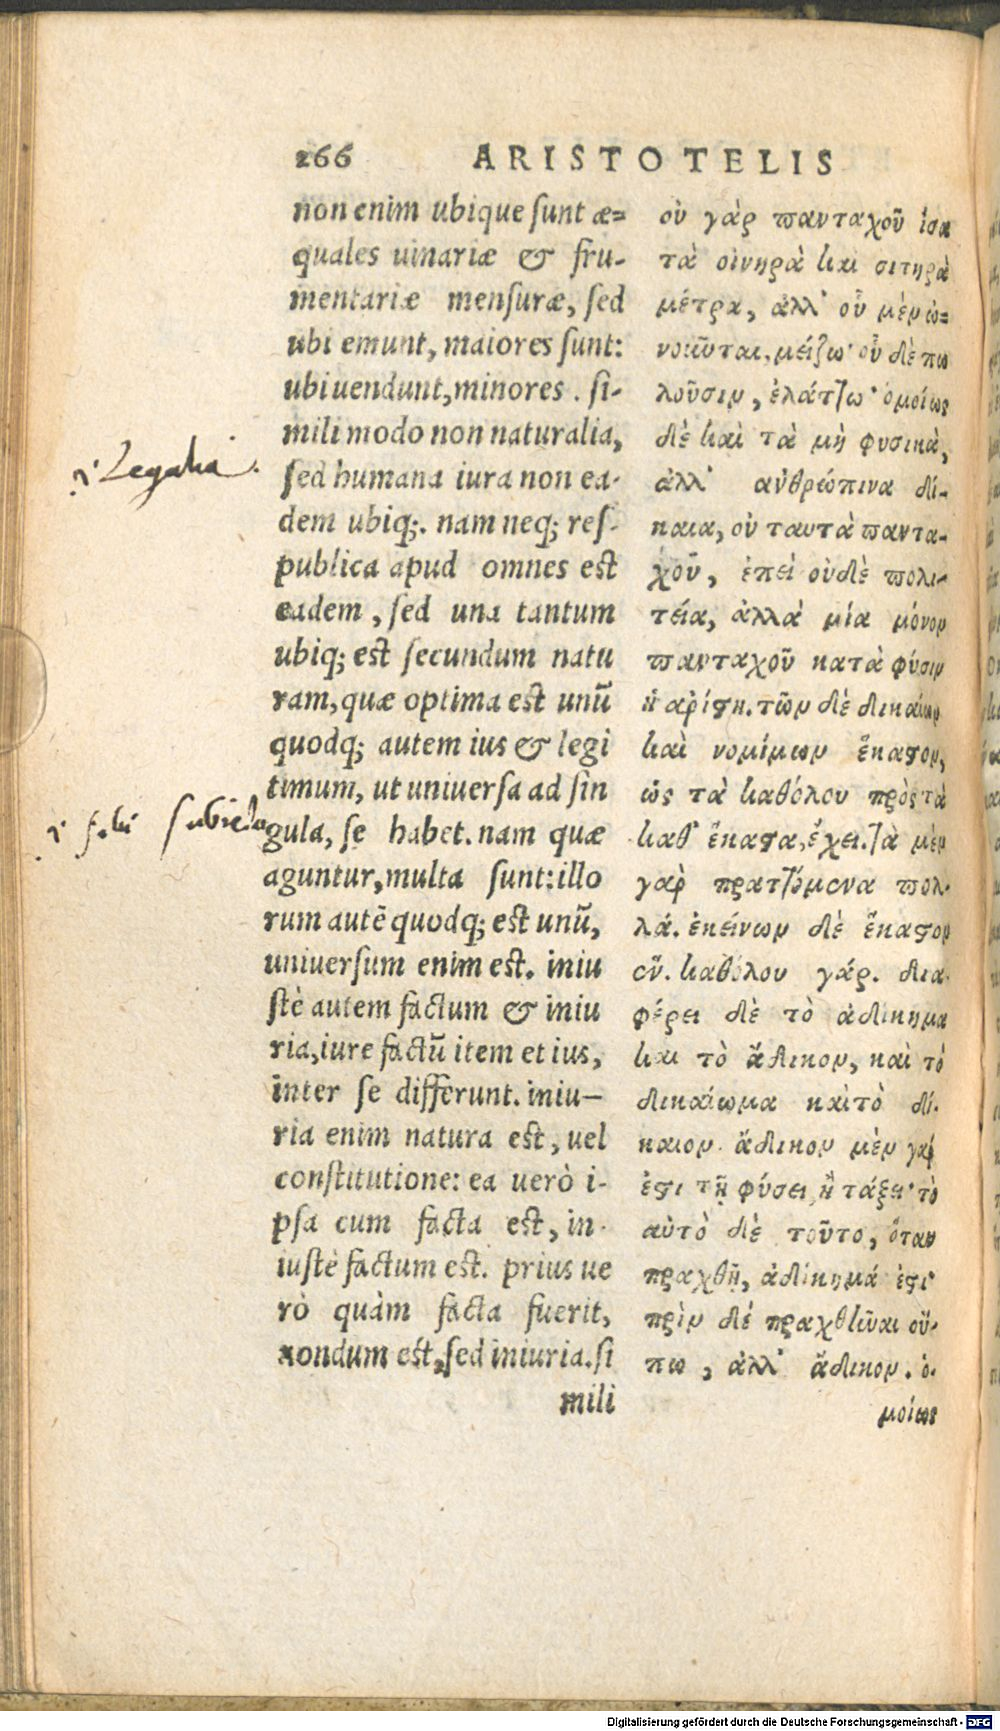 266 ARISTOTELIS
non enim ubique ſunt æ=
quales uinariæ & fru-
mentariæ menſuræ, ſed
ubi emunt, maiores ſunt:
ubi uendunt, minores. ſi-
mili modo non naturalia,
ſed humana iura non ea-
dem ubiq;. nam neq; reſ-
publica apud omnes est
eadem, ſed una tantum
ubiq; est ſecundum natu
ram, quæ optima est unũ
quodq; autem ius & legi
timum, ut uniuerſa ad ſin
gula, ſe habet. nam quæ
aguntur, multa ſunt: illo
rum autẽ quodq; est unũ,
uniuerſum enim est. iniu
ſtè autem factum & iniu
ria, iure factũ item et ius,
inter ſe differunt. iniu—
ria enim natura est, uel
conſtitutione: ea uerò i-
pſa cum facta est, in-
iuſtè factum est. prius ue
rò quàm facta fuerit,
nondum est, ſed iniuria. ſi
mili
οὐ γὰρ πανταχοῦ ἴσα
τὰ οἰνηρὰ καὶ σιτηρὰ
μέτρα, ἀλλ' οὗ μὲν ὠ=
νοῦνται, μείζω· οὗ δὲ πω
λοῦσιν, ἐλάττω· ὁμοίως
δὲ καὶ τὰ μὴ φυσικὰ,
ἀλλ' ἀνθρώπινα δί-
καια, οὐ ταυτὰ παντα-
χοῦ, ἐπεὶ οὐδὲ πολι-
τεία, ἀλλὰ μία μόνον
πανταχοῦ κατὰ φύσιν
ἡ ἀρίστη. τῶν δὲ δικαίων
καὶ νομίμων ἕκαστον,
ὡς τὰ καθόλου πρὸς τὰ
καθ' ἕκαστα, ἔχει. τὰ μὲν
γὰρ πραττόμενα πολ-
λά. ἐκείνων δὲ ἕκαστον
ἕν. καθόλου γάρ. δια-
φέρει δὲ τὸ ἀδίκημα
καὶ τὸ ἄδικον, καὶ τὸ
δικαίωμα καὶ τὸ δί-
καιον. ἄδικον μὲν γάρ
ἐστι τῇ φύσει, ἢ τάξει· τὸ
αὐτὸ δὲ τοῦτο, ὅταν
πραχθῇ, ἀδίκημά ἐστι·
πρὶν δὲ πραχθῆναι οὔ-
πω, ἀλλ' ἄδικον. ὁ-
μοίως
Legalia.
Digitalisierung gefördert durch die Deutsche Forschungsgemeinschaft - DFG